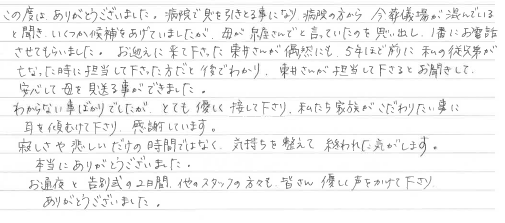 この度は、ありがとうございました。病院で息を引きとる事になり、病院の方から、今葬儀場が混んでいる
と聞き、いくつか候補をあげていましたが、母が泉屋さんでと言っていたのを思い出し、1番にお電話
させてもらいました。お迎えに来て下さった東井さんが偶然にも、5年ほど前に私の従兄弟が
亡なった時に担当して下さった方だと後でわかり、東井さんが担当して下さるとお聞きして、
安心して母を見送る事ができました。
わからない事ばかりでしたが、とても優しく接して下さり、私たち家族がこだわりたい事に
耳を傾むけて下さり、感謝しています。
寂しさや悲しいだけの時間ではなく、気持ちを整えて終われた気がします。
本当にありがとうございました。
お通夜と告別式の2日間、他のスタッフの方々も、皆さん優しく声をかけて下さり、
ありがとうございました。